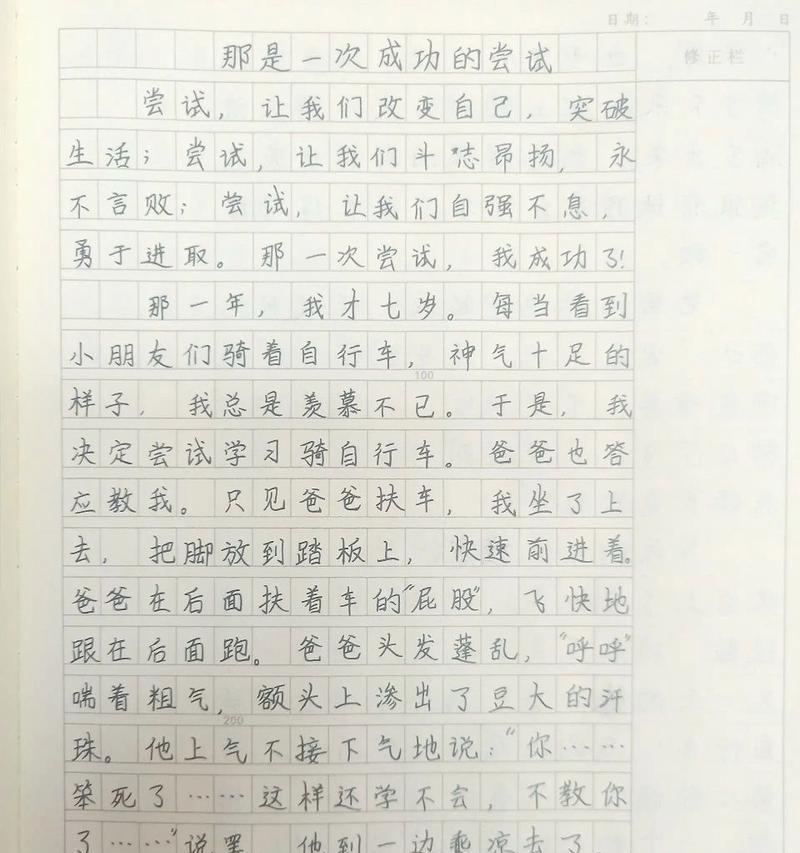 日期： 年 月 日
修正栏
那是一次成功的尝试
尝试，让我们改变自己，突破
生活；尝试，让我们斗志昂扬，永
不言败；尝试，让我们自强不息，
勇于进取。那一次尝试，我成功了！
那一年，我才七岁。每当看到
小朋友们骑着自行车，神气十足的
100
样子，我总是羡慕不已。于是，我
决定尝试学习骑自行车。爸爸也答
应教我。只见爸爸扶车，我坐了上
去，把脚放到踏板上，快速前进着。
爸爸在后面扶着车的“屁股”，飞快地
跟在后面跑。爸爸头发蓬乱，“呼呼”
喘着粗气，额头上渗出了豆大的汗
200
珠。他上气不接下气地说：“你……
笨死了……这样还学不会，不教你
了……”说罢，他到一边乘凉去了。